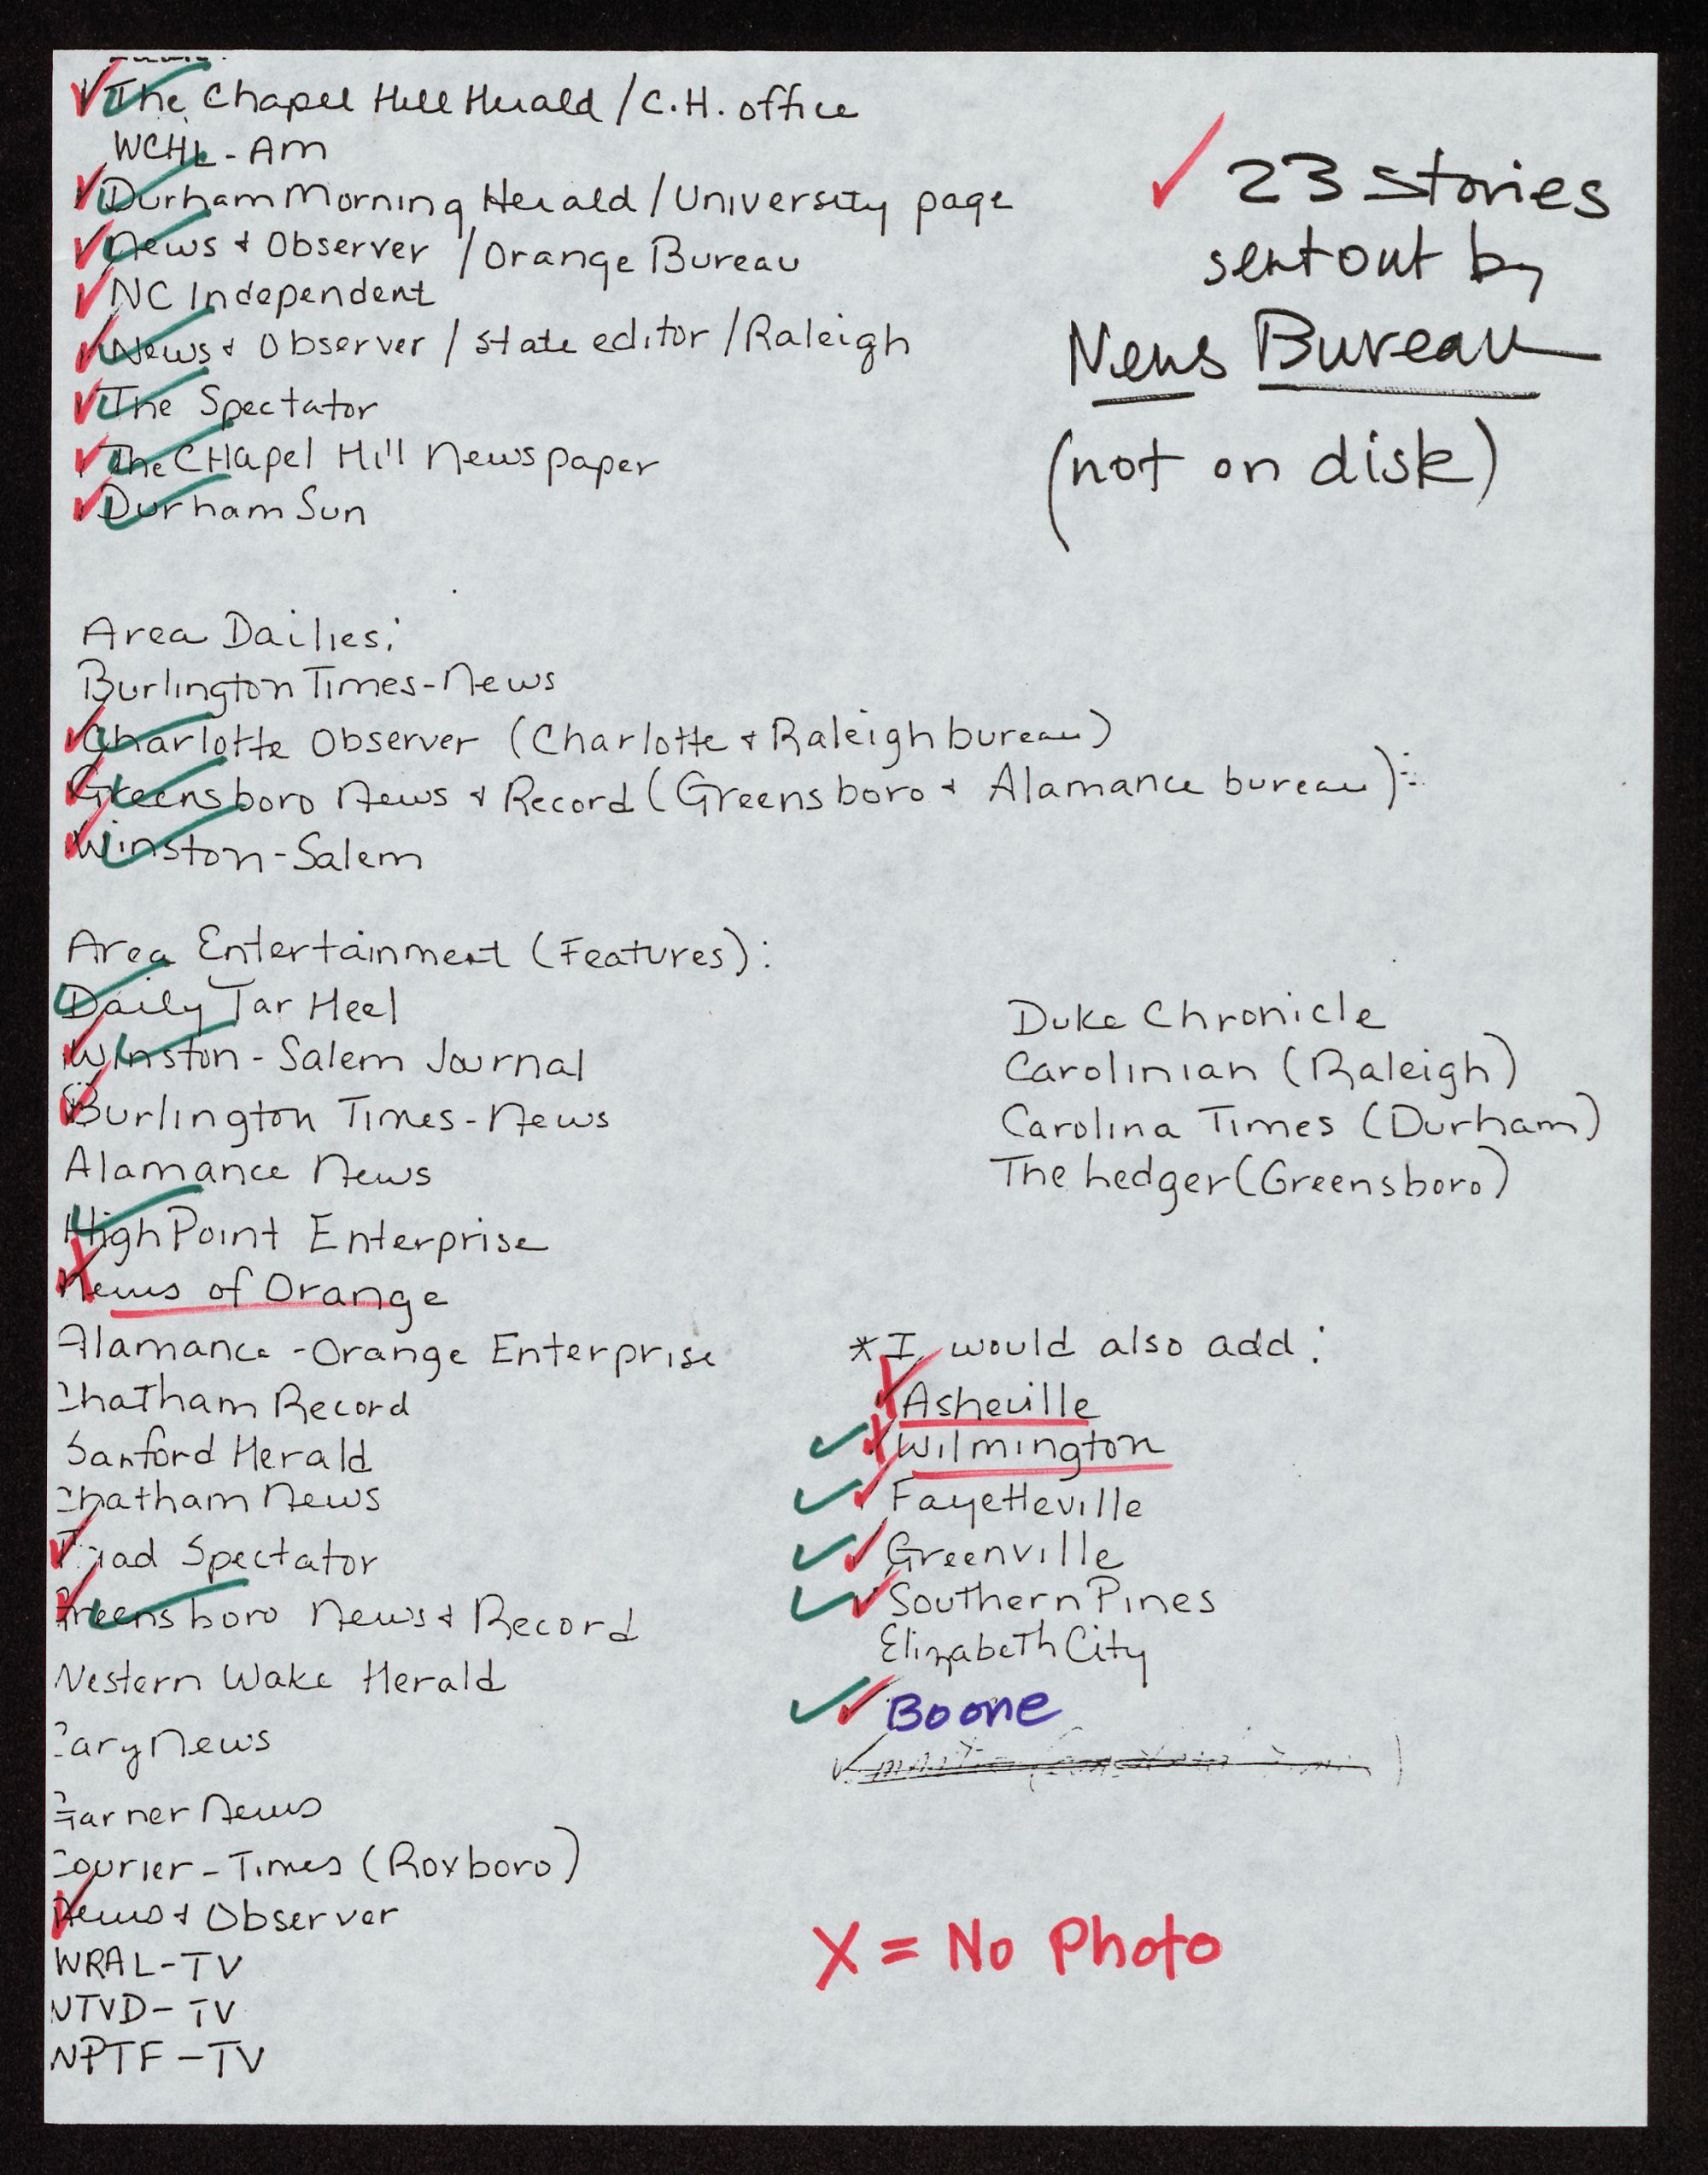 The Chapel Hill Herald / C.H. office
WCHL-AM
Durham Morning Herald / University page
News & Observer / Orange Bureau
NC Independent
News & Observer / State editor / Raleigh
The Spectator
The CHapel Hill Newspaper
Durham Sun
✓ 23 stories
sent out by
News Bureau
(not on disk)
Area Dailies:
Burlington Times-News
Charlotte Observer (Charlotte & Raleigh bureau)
Greensboro News & Record (Greensboro & Alamance bureau)
Winston-Salem
Area Entertainment (Features):
Daily Tar Heel
Winston-Salem Journal
Burlington Times-News
Alamance News
High Point Enterprise
News of Orange
Alamance-Orange Enterprise
Chatham Record
Sanford Herald
Chatham News
Triad Spectator
Greensboro News & Record
Western Wake Herald
Cary News
Garner News
Courier-Times (Roxboro)
News & Observer
WRAL-TV
WTVD-TV
WPTF-TV
Duke Chronicle
Carolinian (Raleigh)
Carolina Times (Durham)
The hedger (Greensboro)
*I would also add:
Asheville
Wilmington
Fayetteville
Greenville
Southern Pines
Elizabeth City
Boone
X = No Photo